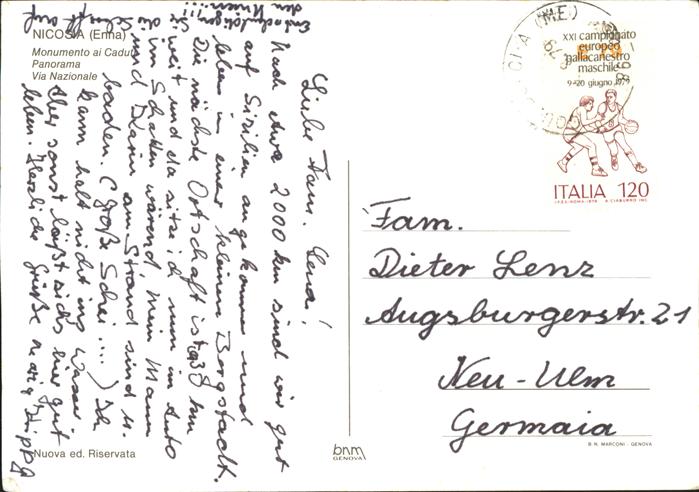 NICOSIA (Enna)
Monumento ai Caduti
Panorama
Via Nazionale
Liebe Fam. Lenz!
Nach etwa 2000 km sind wir gut
auf Sizilien angekommen und
leben in einer kleinen Bergstadt.
Die nächste Ortschaft ist 28 km
weit und da sitze ich nun im Auto
im Schatten während mein Mann
und Karin am Strand sind u.
baden. (Große Schei....) Ich
kann halt nicht ins Wasser
Aber sonst läßt sichs hier gut
leben. Herzliche Grüße
Entschuldigen
den
Nuova ed. Riservata
bnm
GENOVA
XXI campionato
europeo
pallacanestro
maschile
9-20 giugno 1979
ITALIA 120
I.P.Z.S.-ROMA-1979 A. CIABURRO INC.
(ME)
Fam.
Dieter Lenz
Augsburgerstr. 21
Neu-Ulm
Germaia
B. N. MARCONI - GENOVA